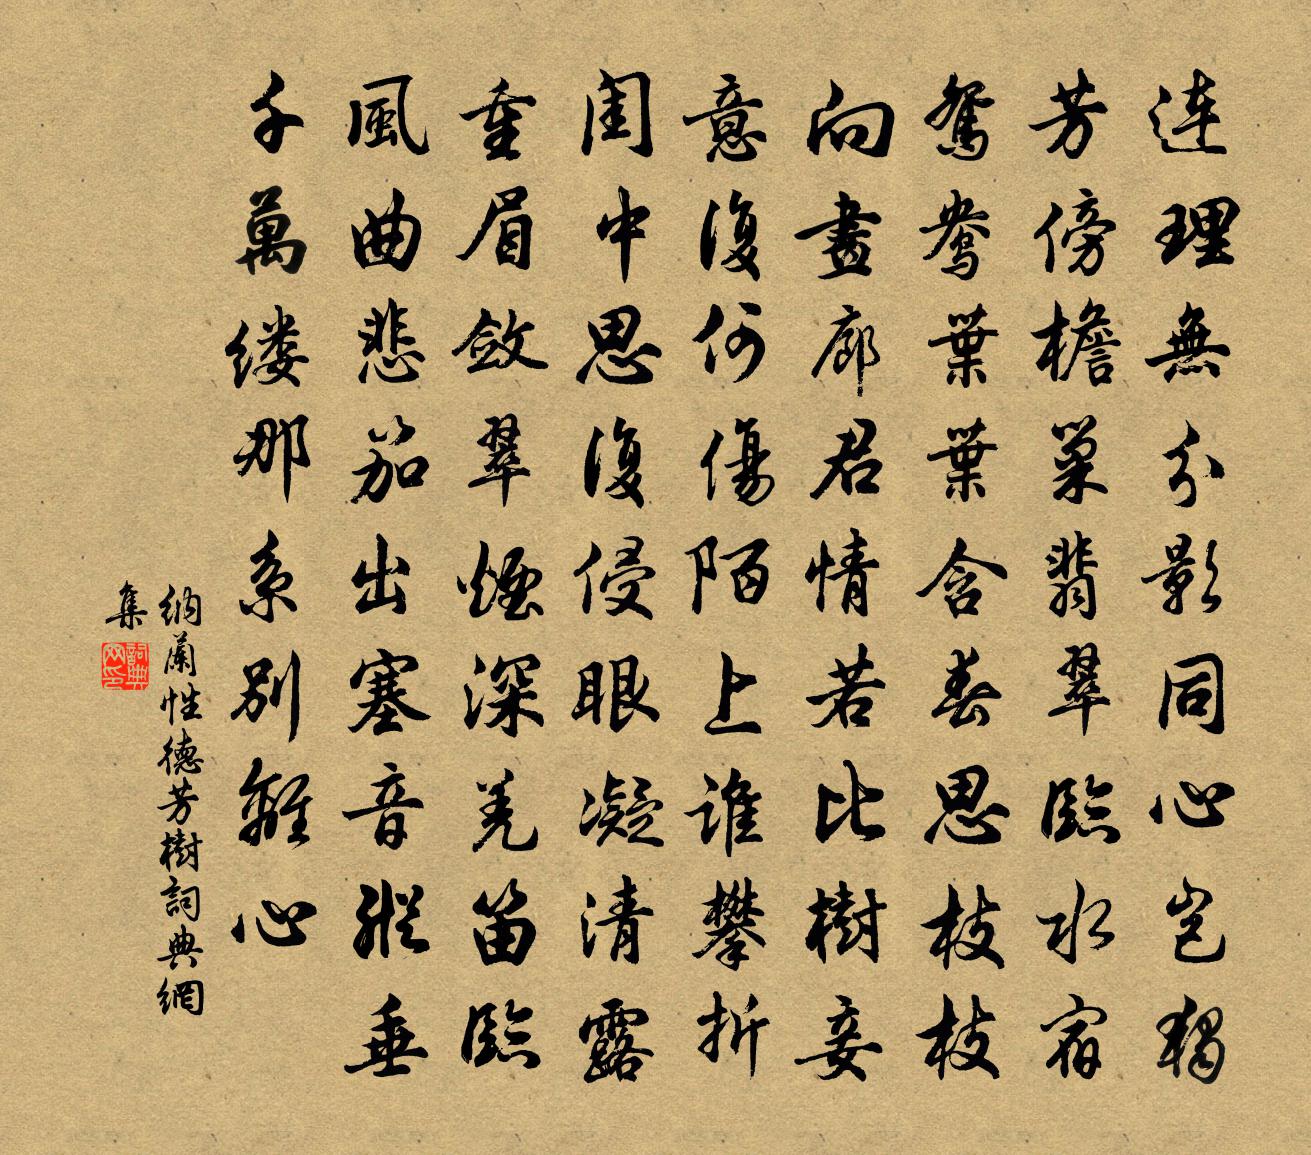 連理無分影同心豈獨
芳傍檐巢翡翠臨水宿
鴛鴦葉葉含春思枝枝
向畫廊君情若比樹妾
意復何傷陌上誰攀折
閨中思復侵眼凝清露
重眉斂翠煙深羌笛臨
風曲悲笳出塞音縱垂
千萬缕那系別離心
納蘭性德芳樹詞典網
集
詞典网印